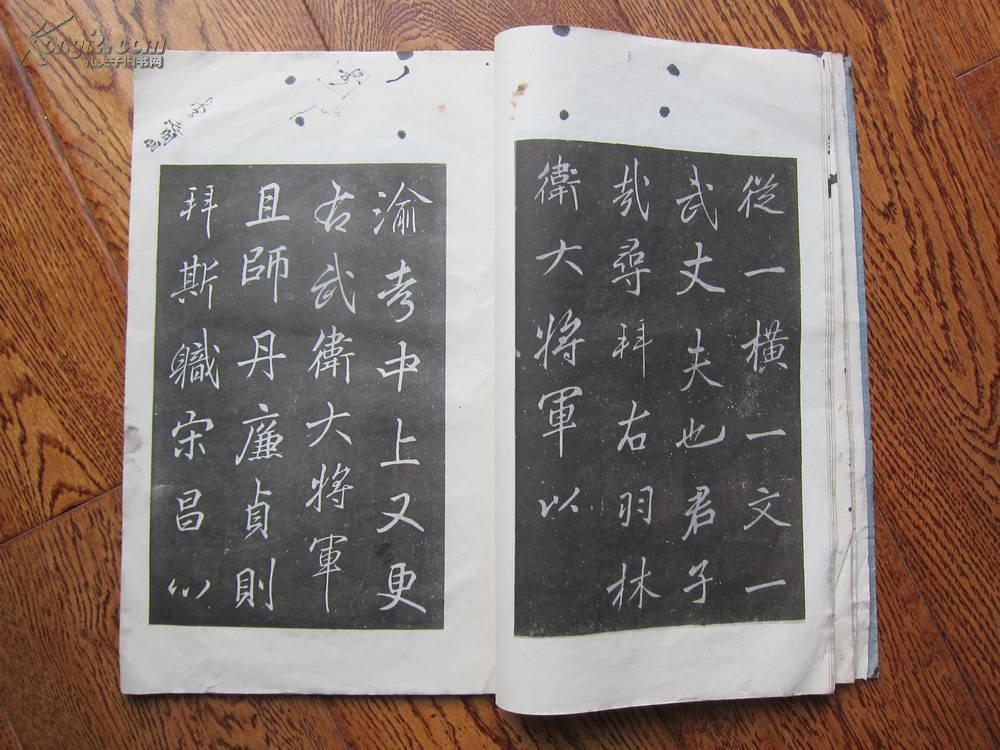 從一橫一文一
武丈夫也君子
哉尋拜右羽林
衛大將軍以
渝考中上又更
右武衛大將軍
且師丹廉貞則
拜斯職宋昌以
Kongfz.com
孔夫子旧书网